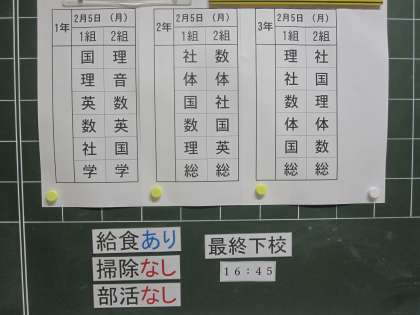 1年 2月5日 (月)
1組 2組
国 理
理 音
英 数
数 英
社 国
学 学
2年 2月5日 (月)
1組 2組
社 数
体 体
国 社
数 国
理 英
総 総
3年 2月5日 (月)
1組 2組
理 社
社 国
数 理
体 体
国 数
総 総
給食あり
掃除なし
部活なし
最終下校
16:45